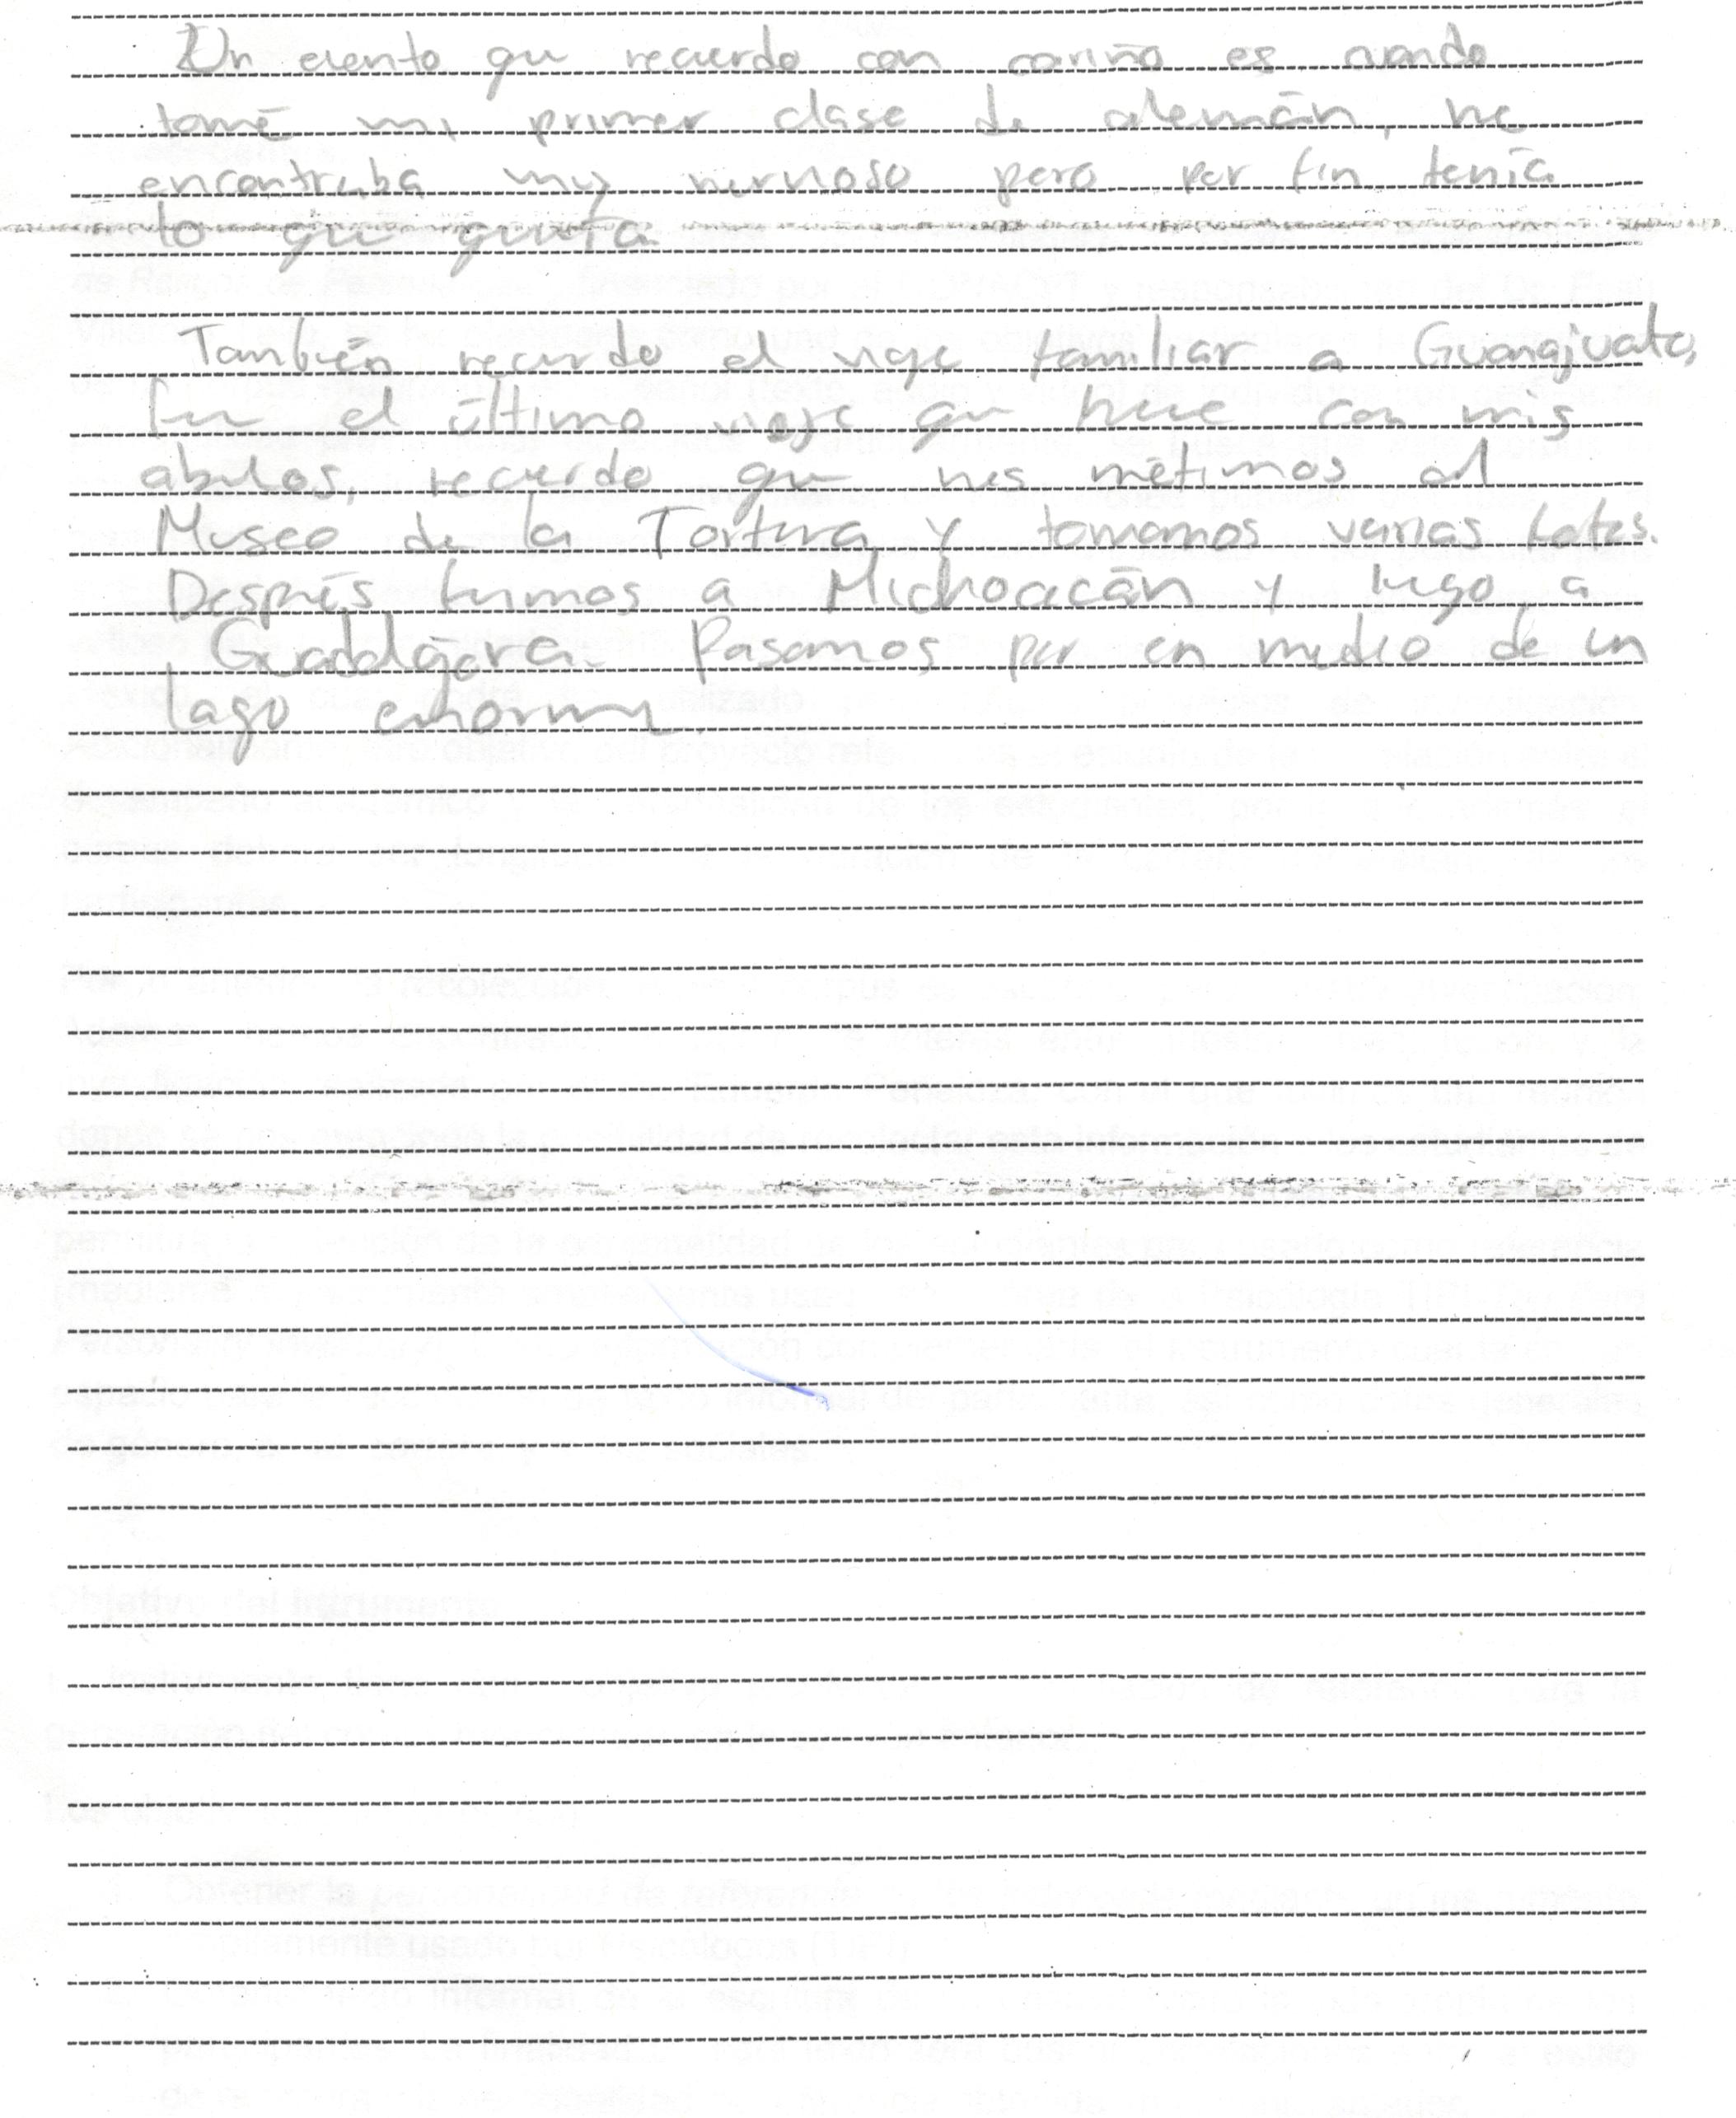 Un evento que recuerdo con cariño es cuando
tomé mi primer clase de alemán, me
encontraba muy nervioso pero por fin tenía
lo que quería
También recuerdo el viaje familiar a Guanajuato,
fue el último viaje que hice con mis
abuelos, recuerdo que nos métimos al
Museo de la Tortura y tomamos varias fotos.
Después fuimos a Michoacán y luego a
Guadalajara. Pasamos por en medio de un
lago enorme